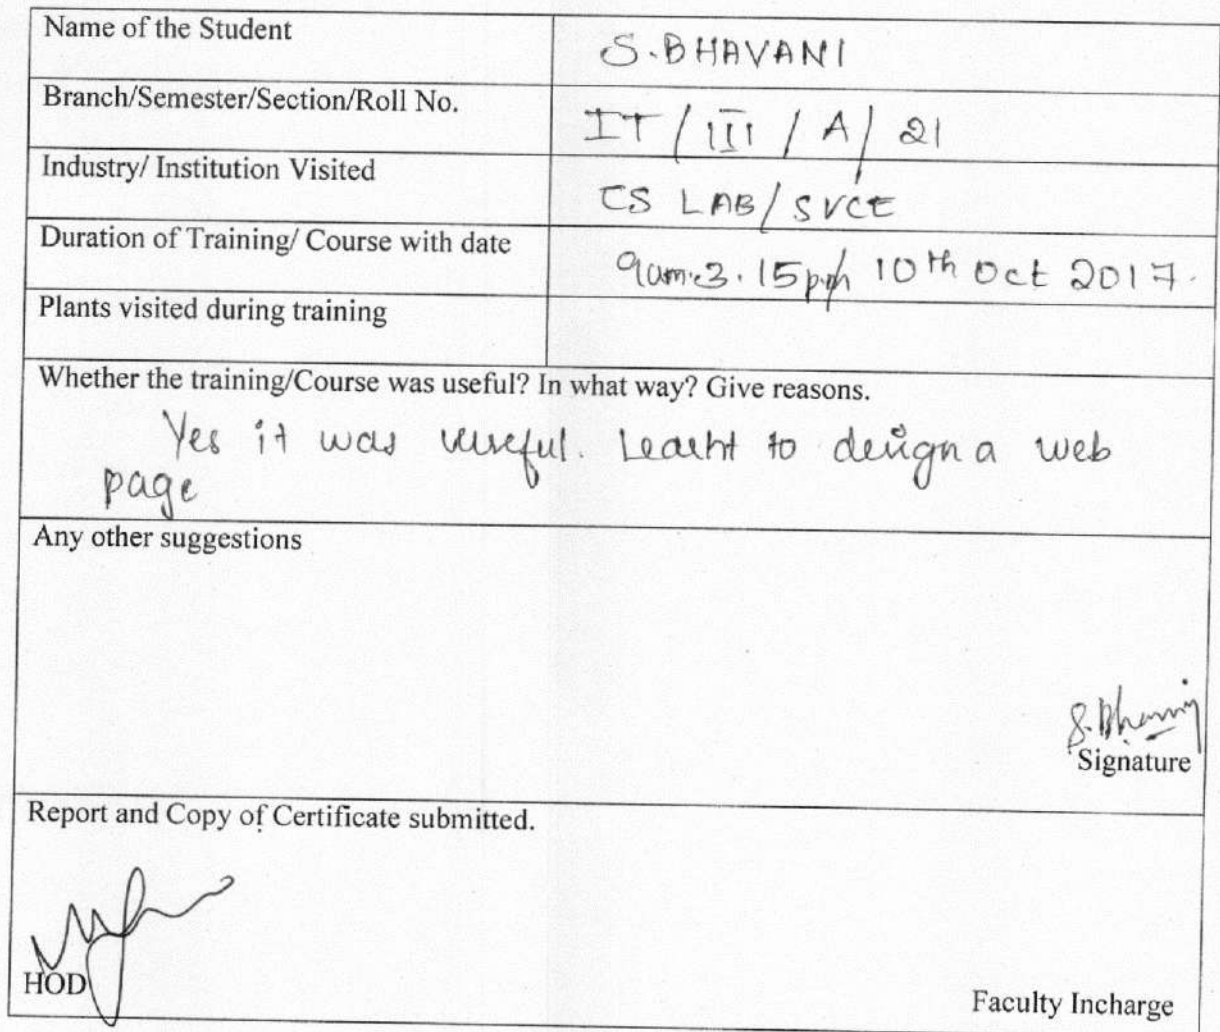 Name of the Student S.BHAVANI
Branch/Semester/Section/Roll No. IT / III / A / 21
Industry/ Institution Visited CS LAB / SVCE
Duration of Training/ Course with date 9am-3.15pm 10th Oct 2017.
Plants visited during training
Whether the training/Course was useful? In what way? Give reasons.
Yes it was useful. Learnt to design a web
page
Any other suggestions
S. Bhavani
Signature
Report and Copy of Certificate submitted.
HOD
Faculty Incharge